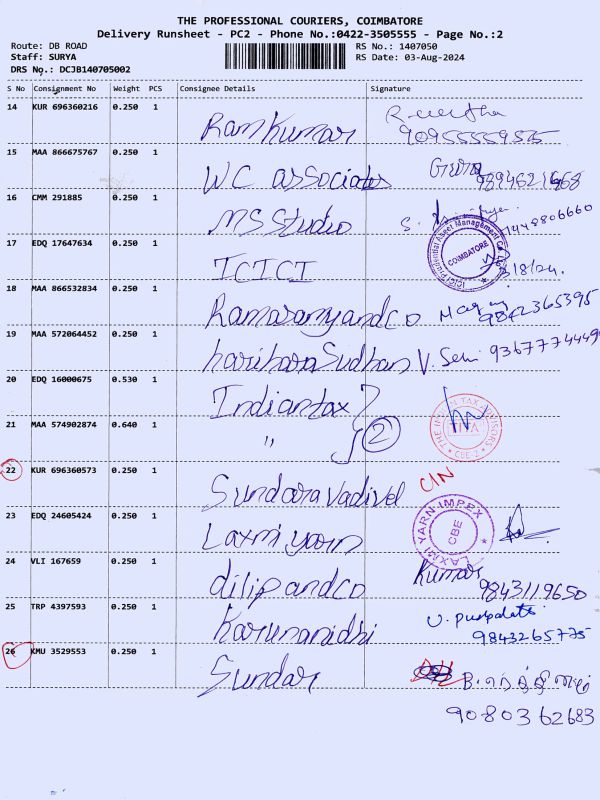 THE PROFESSIONAL COURIERS, COIMBATORE
Delivery Runsheet - PC2 - Phone No.:0422-3505555 - Page No.:2
Route: DB ROAD RS No.: 1407050
Staff: SURYA RS Date: 03-Aug-2024
DRS No.: DCJB140705002
S No Consignment No Weight PCS Consignee Details Signature
14 KUR 696360216 0.250 1 Ramkumar
15 MAA 866675767 0.250 1 WC associates
16 CMM 291885 0.250 1 MS Studio
17 EDQ 17647634 0.250 1 ICICI COIMBATORE
18 MAA 866532834 0.250 1 Ramasamy and co 9842365395
19 MAA 572064452 0.250 1 harihara Sudhan
20 EDQ 16000675 0.530 1 Indian tax
21 MAA 574902874 0.640 1 " 2
22 KUR 696360573 0.250 1 Sundara Vadivel CIN
23 EDQ 24605424 0.250 1 Laxmi yarn LAXMI YARN IMPEX CBE
24 VLI 167659 0.250 1 dilip and co Kumar 9843119650
25 TRP 4397593 0.250 1 Karunanidhi 9843265775
26 KMU 3529553 0.250 1 Sundar
9080362683